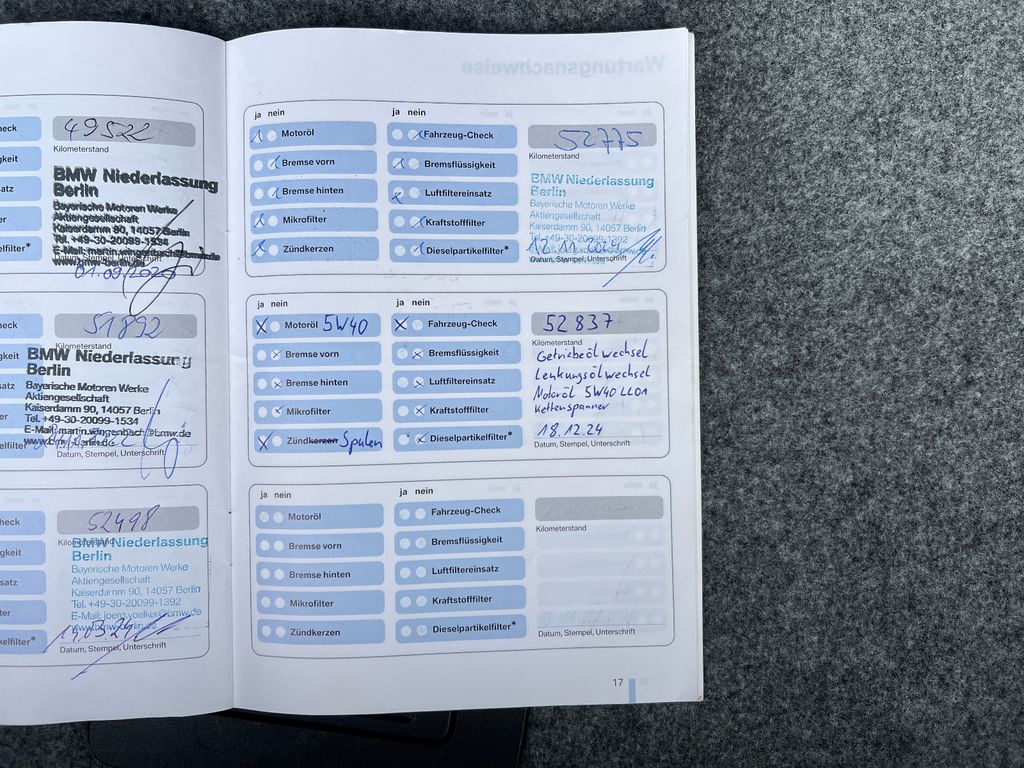 heck
gkeit
satz
er
elfilter*
49522
Kilometerstand
BMW Niederlassung
Berlin
Bayerische Motoren Werke
Aktiengesellschaft
Kaiserdamm 90, 14057 Berlin
Tel. +49-30-20099-1534
E-Mail: martin.wingenbach@bmw.de
www.bmw-berlin.de
heck
gkeit
satz
er
elfilter
51892
BMW Niederlassung
Berlin
Bayerische Motoren Werke
Aktiengesellschaft
Kaiserdamm 90, 14057 Berlin
Tel. +49-30-20099-1534
E-Mail: martin.wingenbach@bmw.de
www.bmw-berlin.de
Datum, Stempel, Unterschrift
heck
gkeit
satz
ter
kelfilter*
52498
BMW Niederlassung
Berlin
Bayerische Motoren Werke
Aktiengesellschaft
Kaiserdamm 90, 14057 Berlin
Tel. +49-30-20099-1392
E-Mail: joerg.voelker@bmw.de
www.bmw-berlin.de
19.03.24
Datum, Stempel, Unterschrift
Wartungsnachweise
ja nein
Motoröl
Bremse vorn
Bremse hinten
Mikrofilter
Zündkerzen
ja nein
Fahrzeug-Check
Bremsflüssigkeit
Luftfiltereinsatz
Kraftstofffilter
Dieselpartikelfilter*
52775
Kilometerstand
BMW Niederlassung
Berlin
Bayerische Motoren Werke
Aktiengesellschaft
Kaiserdamm 90, 14057 Berlin
Tel. +49-30-20099-1392
12.11.2024
Datum, Stempel, Unterschrift
ja nein
Motoröl 5W40
Bremse vorn
Bremse hinten
Mikrofilter
Zündkerzen Spulen
ja nein
Fahrzeug-Check
Bremsflüssigkeit
Luftfiltereinsatz
Kraftstofffilter
Dieselpartikelfilter*
52837
Kilometerstand
Getriebeöl wechsel
Lenkungsöl wechsel
Motoröl 5W40 LL01
Kettenspanner
18.12.24
Datum, Stempel, Unterschrift
ja nein
Motoröl
Bremse vorn
Bremse hinten
Mikrofilter
Zündkerzen
ja nein
Fahrzeug-Check
Bremsflüssigkeit
Luftfiltereinsatz
Kraftstofffilter
Dieselpartikelfilter*
Kilometerstand
Datum, Stempel, Unterschrift
17